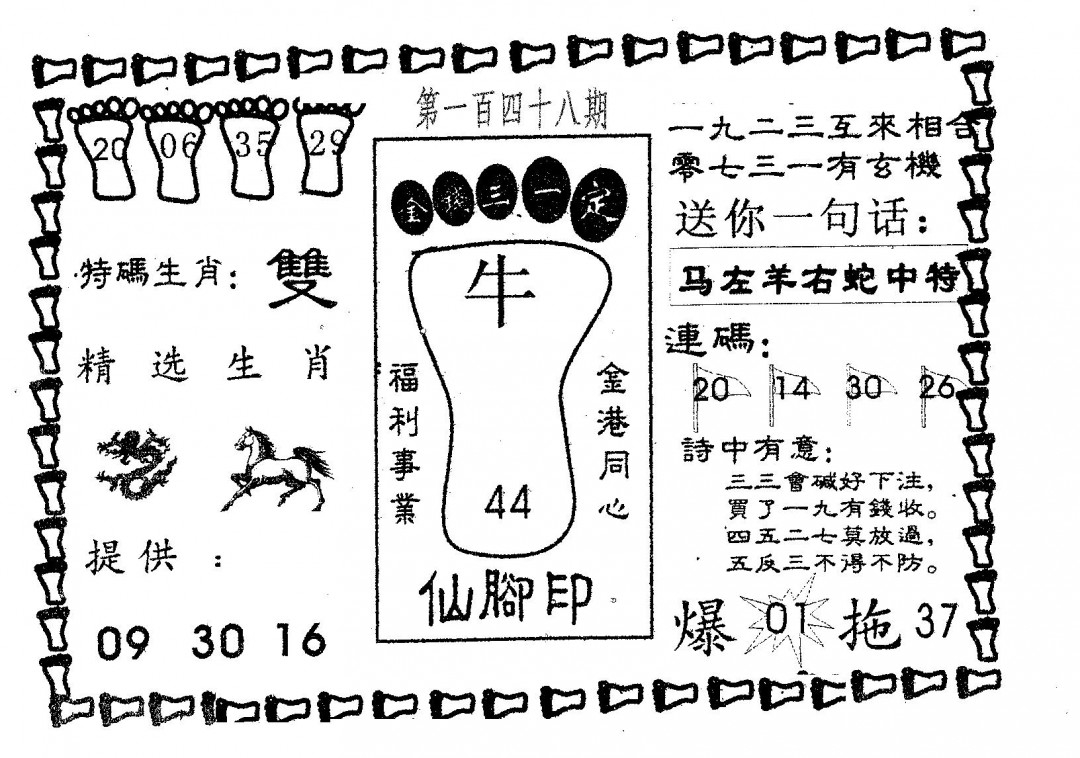 第一百四十八期
20 06 35 29
特碼生肖：雙
精选生肖
提供：
09 30 16
金 三一定
牛
福利事業
金港同心
44
仙腳印
一九二三互來相合
零七三一有玄機
送你一句话：
马左羊右蛇中特
連碼：
20 14 30 26
詩中有意：
三三會碱好下注，
買了一九有錢收。
四五二七莫放過，
五反三不得不防。
爆 01 拖 37